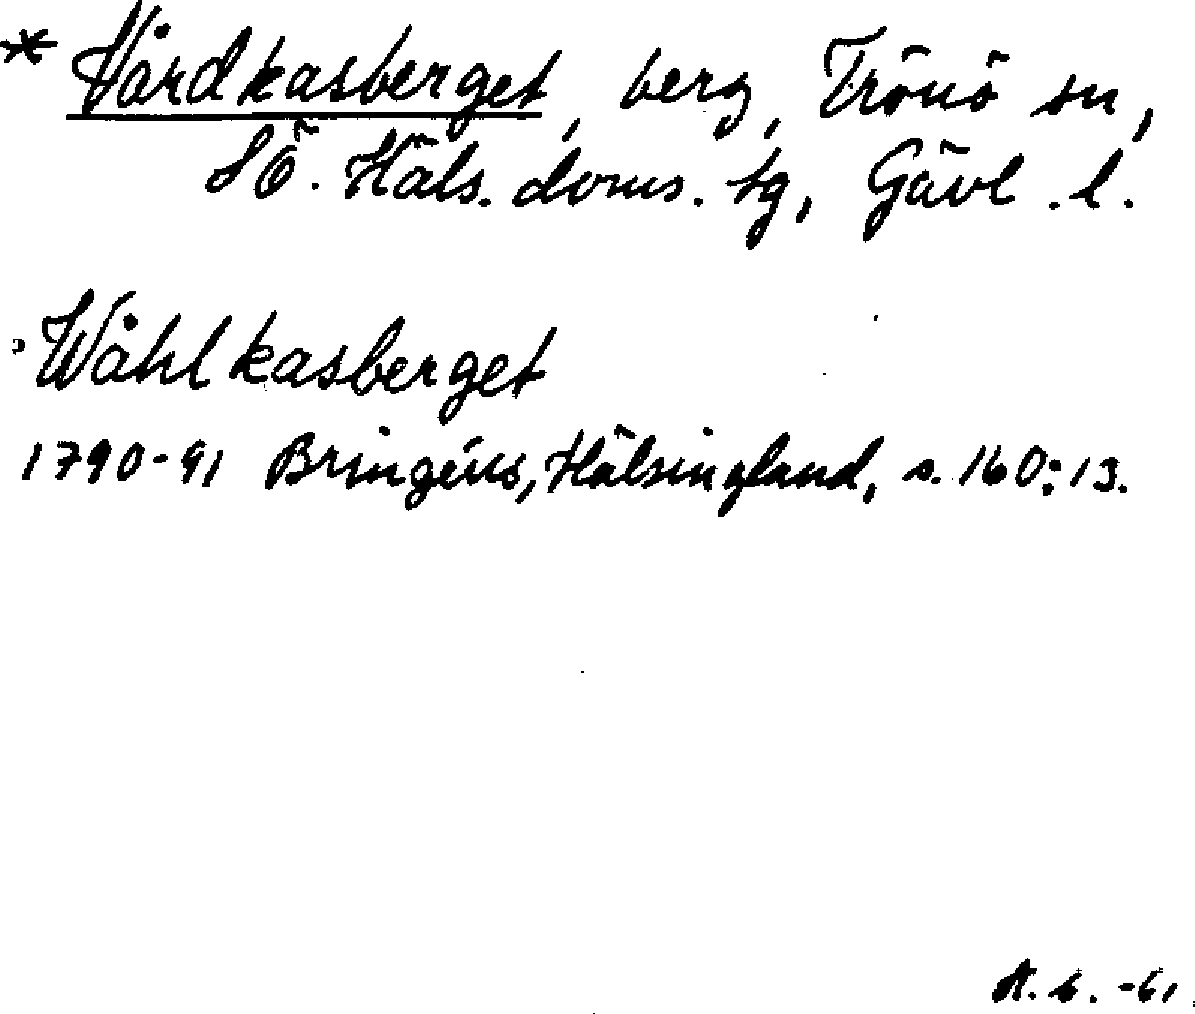 * Vårdkasberget, berg, Trönö sn,
SÖ. Häls. doms. tg, Gävl. l.
Wåhlkasberget
1790-91 Bringéus, Hälsingland, s. 160:13.
-61.